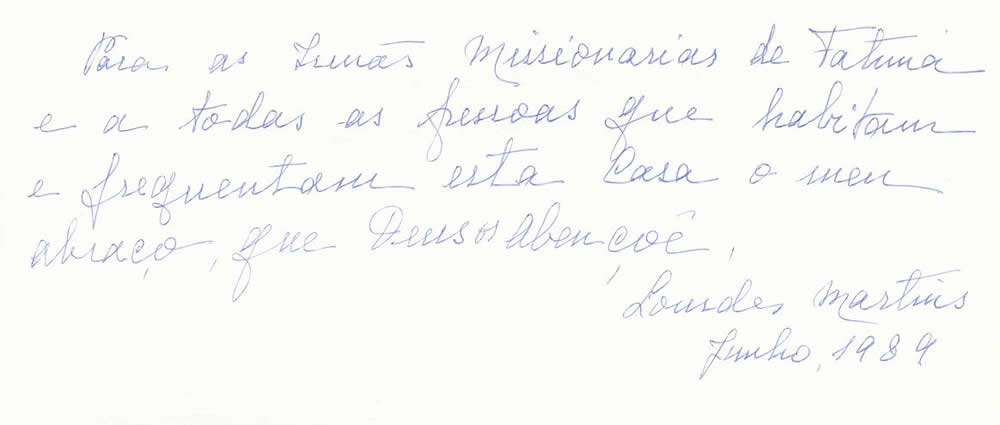 Para as Irmãs Missionarias de Fatima
e a todas as pessoas que habitam
e frequentam esta Casa o meu
abraço, que Deus os abençoê,
Lourdes Martins
Junho, 1989